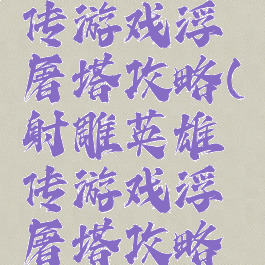 传游戏浮
屠塔攻略(
射雕英雄
传游戏浮
屠塔攻略